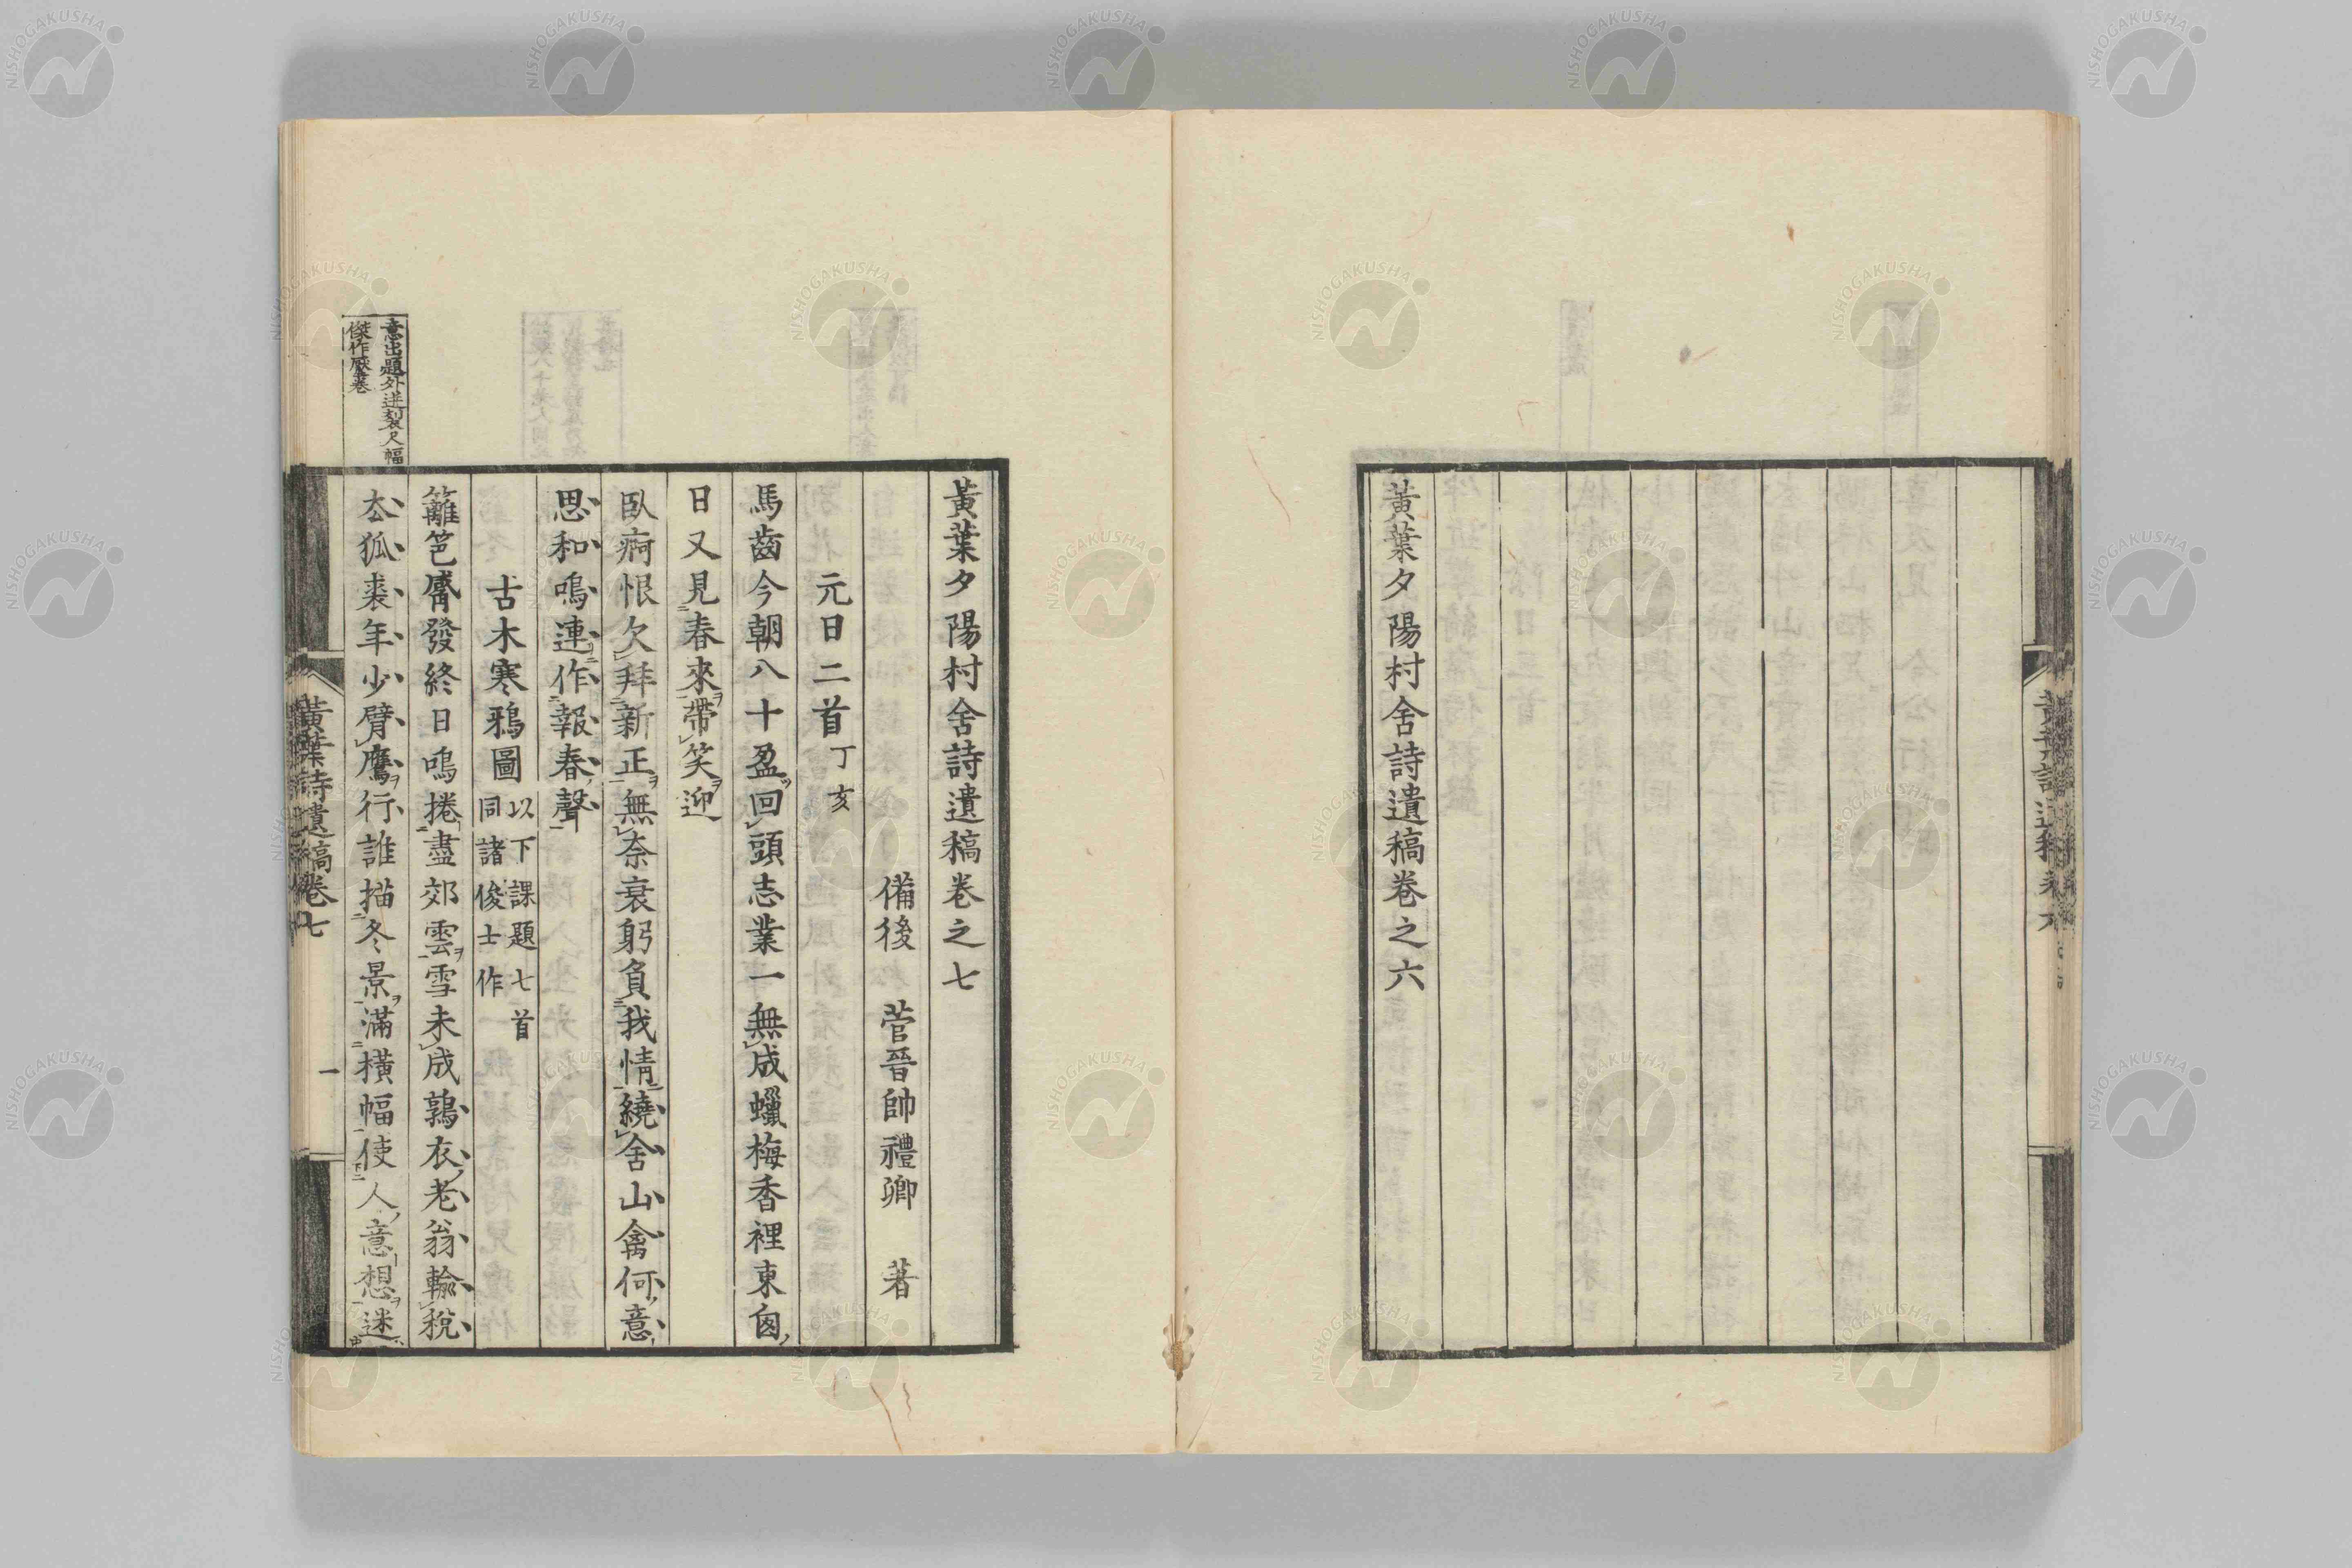 黃葉夕陽村舍詩遺稿卷之六
黃葉夕陽村舍詩遺稿卷之七
備後 菅晉帥禮卿 著
元日二首 丁亥
馬齒今朝八十盈回頭志業一無成蠟梅香裡東囱
日又見春來帶笑迎
臥痾恨欠拜新正無奈衰躬負我情繞舍山禽何意
思和鳴連作報春聲
古木寒鴉圖 以下課題七首
同諸俊士作
籬笆觱發終日鳴捲盡郊雲雪未成鶉衣老翁輸稅
厺狐裘年少臂鷹行誰描冬景滿橫幅使人意想迷
意出題外逆裂尺幅
傑作壓卷
黃葉詩遺稿卷七
一
NISHOGAKUSHA